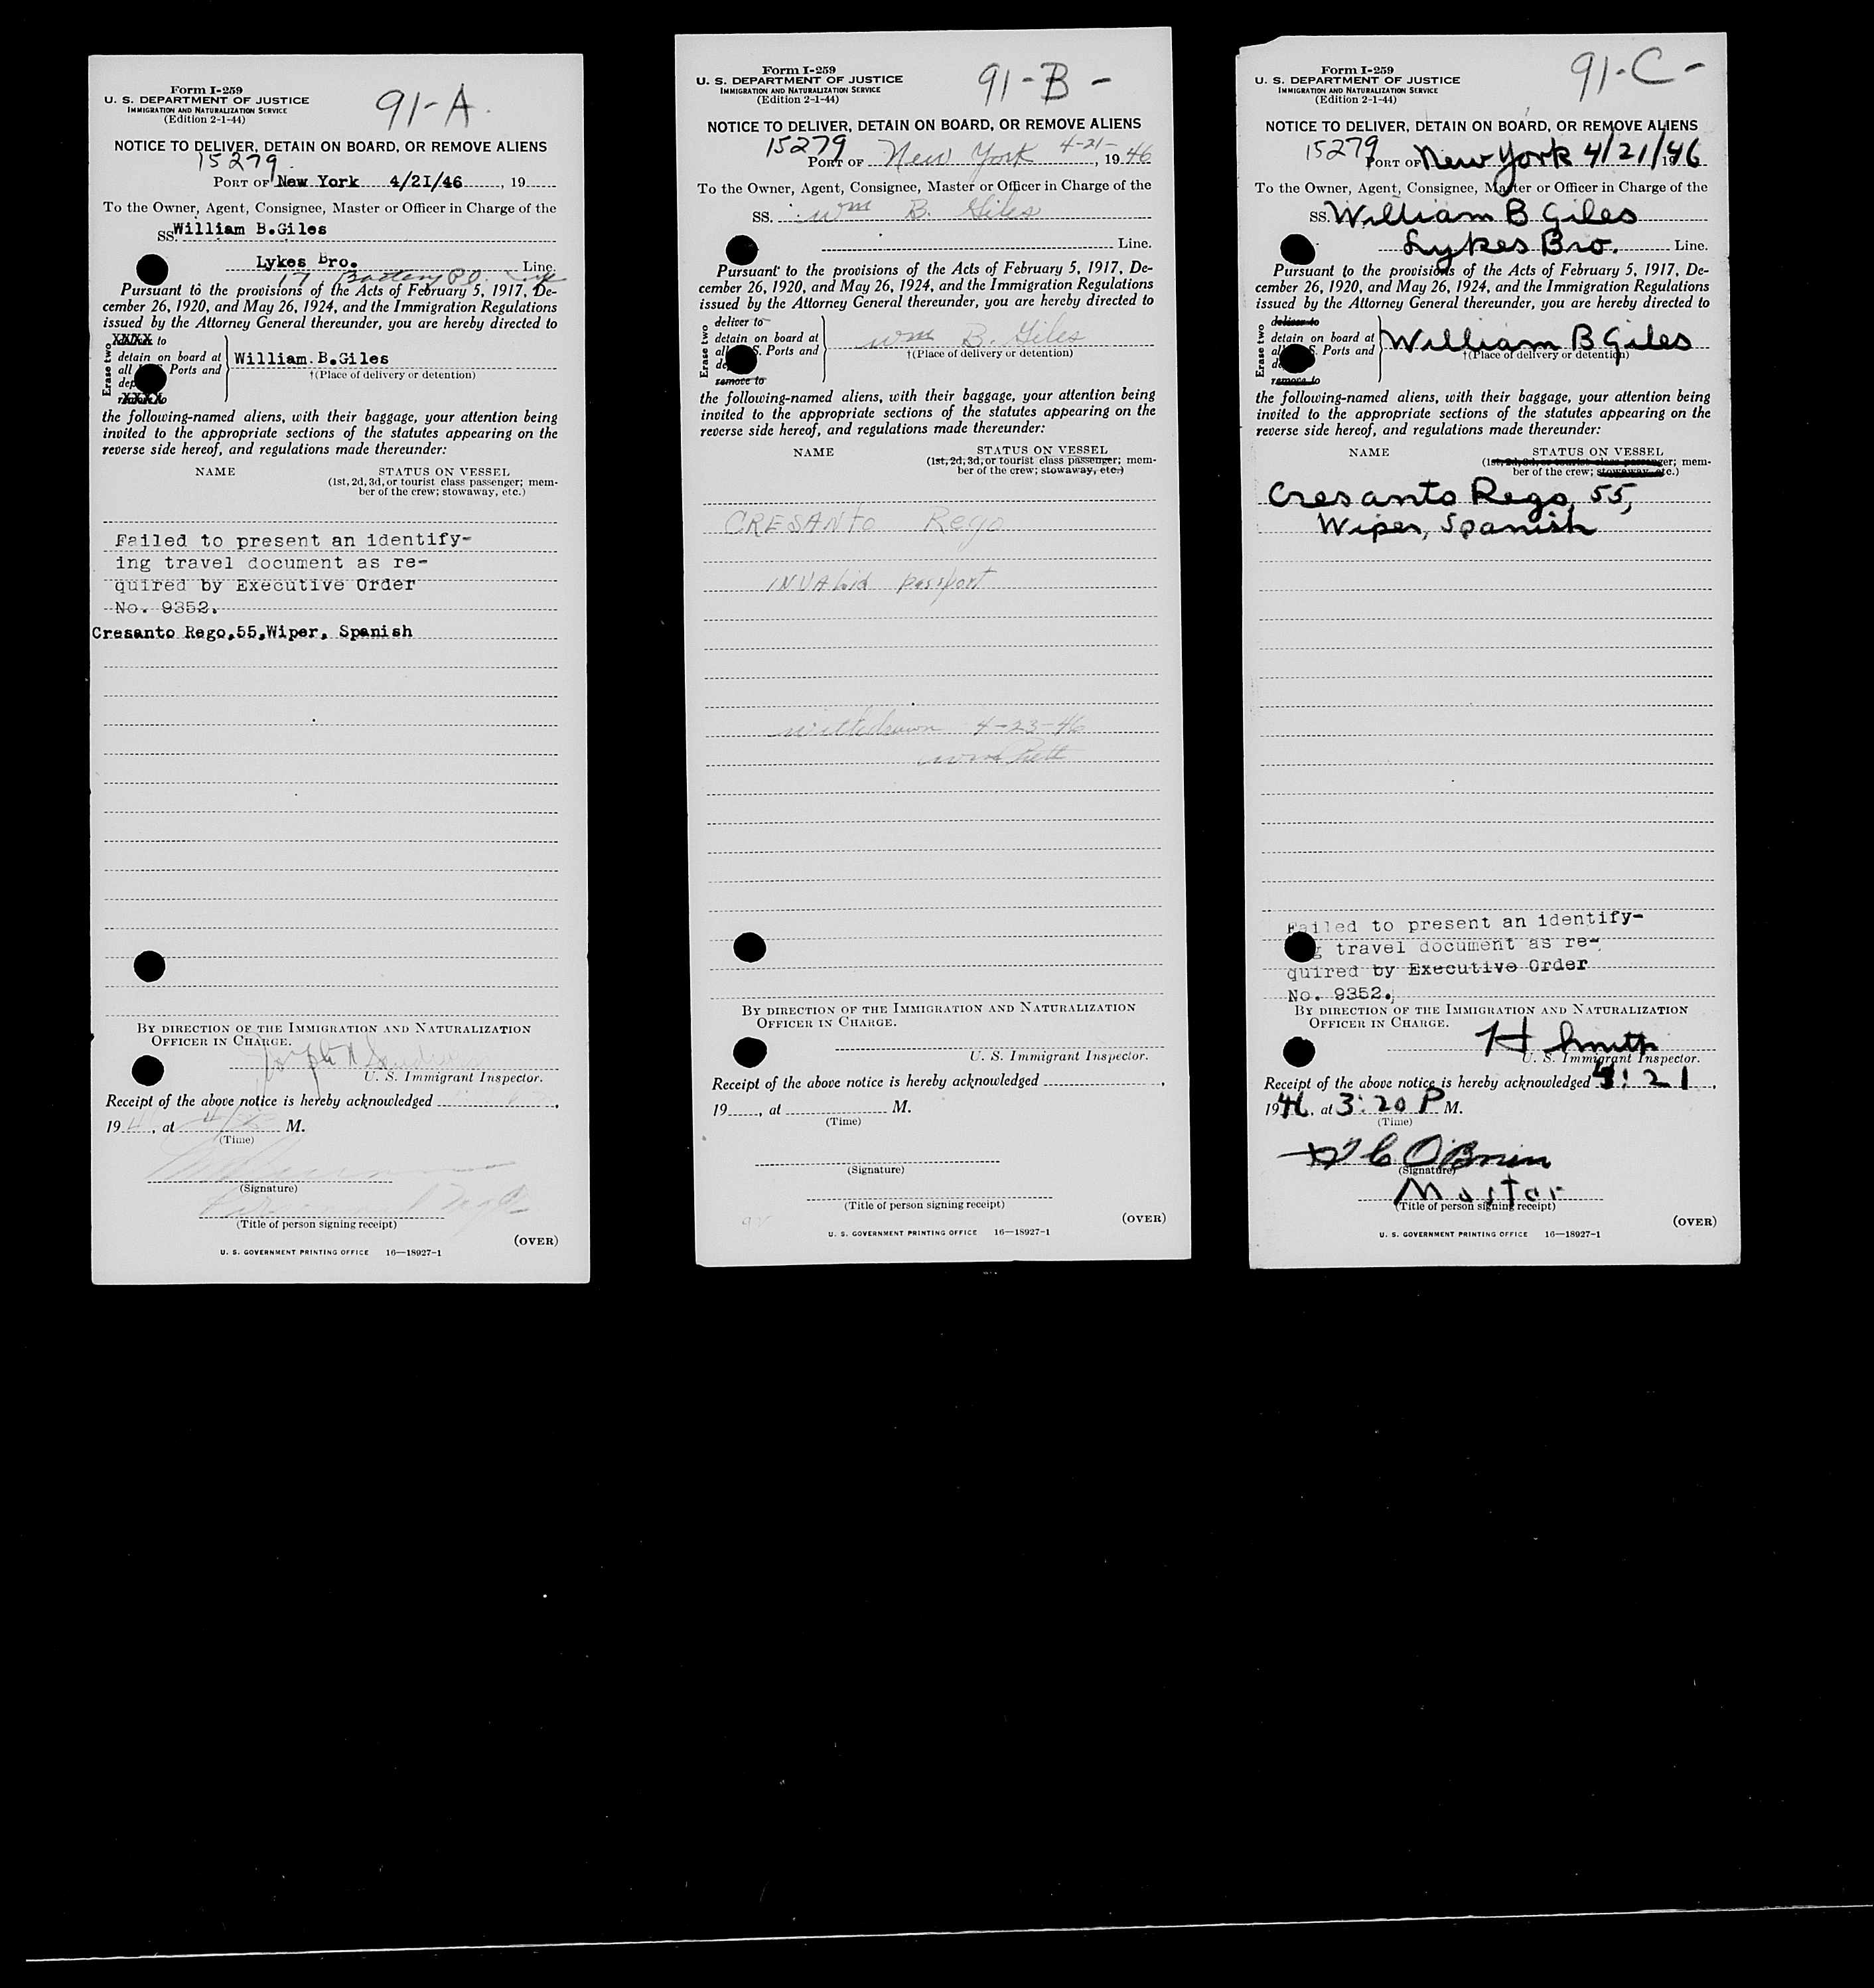 Form I-259
U. S. DEPARTMENT OF JUSTICE
IMMIGRATION AND NATURALIZATION SERVICE
(Edition 2-1-44)
91-A.
NOTICE TO DELIVER, DETAIN ON BOARD, OR REMOVE ALIENS
15279
PORT OF New York 4/21/46, 19
To the Owner, Agent, Consignee, Master or Officer in Charge of the
SS. William B.Giles
Lykes Bro. Line.
17 Battery Pl.
Pursuant to the provisions of the Acts of February 5, 1917, De-
cember 26, 1920, and May 26, 1924, and the Immigration Regulations
issued by the Attorney General thereunder, you are hereby directed to
Erase two
XXXX to
detain on board at
all Ports and
dep
XXXX
William.B.Giles
†(Place of delivery or detention)
the following-named aliens, with their baggage, your attention being
invited to the appropriate sections of the statutes appearing on the
reverse side hereof, and regulations made thereunder:
NAME STATUS ON VESSEL
(1st, 2d, 3d, or tourist class passenger; mem-
ber of the crew; stowaway, etc.)
Failed to present an identify-
ing travel document as re-
quired by Executive Order
No. 9352.
Cresanto Rego,55,Wiper, Spanish
BY DIRECTION OF THE IMMIGRATION AND NATURALIZATION
OFFICER IN CHARGE.
Joseph
U. S. Immigrant Inspector.
Receipt of the above notice is hereby acknowledged
194, at M.
(Time)
(Signature)
(Title of person signing receipt)
(OVER)
U. S. GOVERNMENT PRINTING OFFICE 16—18927-1
Form I-259
U. S. DEPARTMENT OF JUSTICE
IMMIGRATION AND NATURALIZATION SERVICE
(Edition 2-1-44)
91-B -
NOTICE TO DELIVER, DETAIN ON BOARD, OR REMOVE ALIENS
15279
PORT OF New York 4-21-, 1946
To the Owner, Agent, Consignee, Master or Officer in Charge of the
SS. Wm B. Giles
Line.
Pursuant to the provisions of the Acts of February 5, 1917, De-
cember 26, 1920, and May 26, 1924, and the Immigration Regulations
issued by the Attorney General thereunder, you are hereby directed to
Erase two
deliver to
detain on board at
al S. Ports and
de
remove to
Wm B. Giles
†(Place of delivery or detention)
the following-named aliens, with their baggage, your attention being
invited to the appropriate sections of the statutes appearing on the
reverse side hereof, and regulations made thereunder:
NAME STATUS ON VESSEL
(1st, 2d, 3d, or tourist class passenger; mem-
ber of the crew; stowaway, etc.)
CRESANto Rego
INVAlid passport
withdrawn 4-23-46
BY DIRECTION OF THE IMMIGRATION AND NATURALIZATION
OFFICER IN CHARGE.
U. S. Immigrant Inspector.
Receipt of the above notice is hereby acknowledged ,
19, at M.
(Time)
(Signature)
(Title of person signing receipt)
(OVER)
U. S. GOVERNMENT PRINTING OFFICE 16—18927-1
Form I-259
U. S. DEPARTMENT OF JUSTICE
IMMIGRATION AND NATURALIZATION SERVICE
(Edition 2-1-44)
91-C -
NOTICE TO DELIVER, DETAIN ON BOARD, OR REMOVE ALIENS
15279
PORT OF New York 4/21/1946
To the Owner, Agent, Consignee, Master or Officer in Charge of the
SS. William B Giles
Lykes Bro. Line.
Pursuant to the provisions of the Acts of February 5, 1917, De-
cember 26, 1920, and May 26, 1924, and the Immigration Regulations
issued by the Attorney General thereunder, you are hereby directed to
Erase two
deliver to
detain on board at
al S. Ports and
de
remove to
William B Giles
†(Place of delivery or detention)
the following-named aliens, with their baggage, your attention being
invited to the appropriate sections of the statutes appearing on the
reverse side hereof, and regulations made thereunder:
NAME STATUS ON VESSEL
(1st, 2d, 3d, or tourist class passenger; mem-
ber of the crew; stowaway, etc.)
Cresanto Rego, 55,
Wiper, Spanish
Failed to present an identify-
g travel document as re-
quired by Executive Order
No. 9352.
BY DIRECTION OF THE IMMIGRATION AND NATURALIZATION
OFFICER IN CHARGE.
H Smith
U. S. Immigrant Inspector.
Receipt of the above notice is hereby acknowledged 4:21,
1946, at 3:20 P M.
(Time)
O'Brien
(Signature)
Master
(Title of person signing receipt)
(OVER)
U. S. GOVERNMENT PRINTING OFFICE 16—18927-1